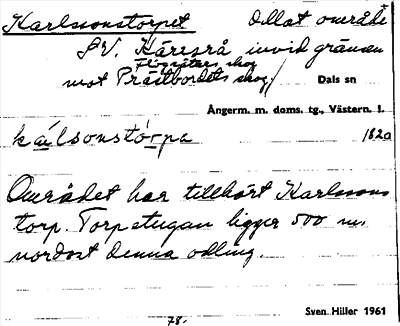 Karlssonstorpet   Odlat område
SV. Käresrå invid gränsen
Flögsäters skog
mot Prästbordets skog   Dals sn
Ångerm. m. doms. tg., Västern. l.
kálsonstórpa   1820
Området har tillhört Karlssons
torp. Torpstugan ligger 500 m.
nordost denna odling.
Sven Hiller 1961
78.